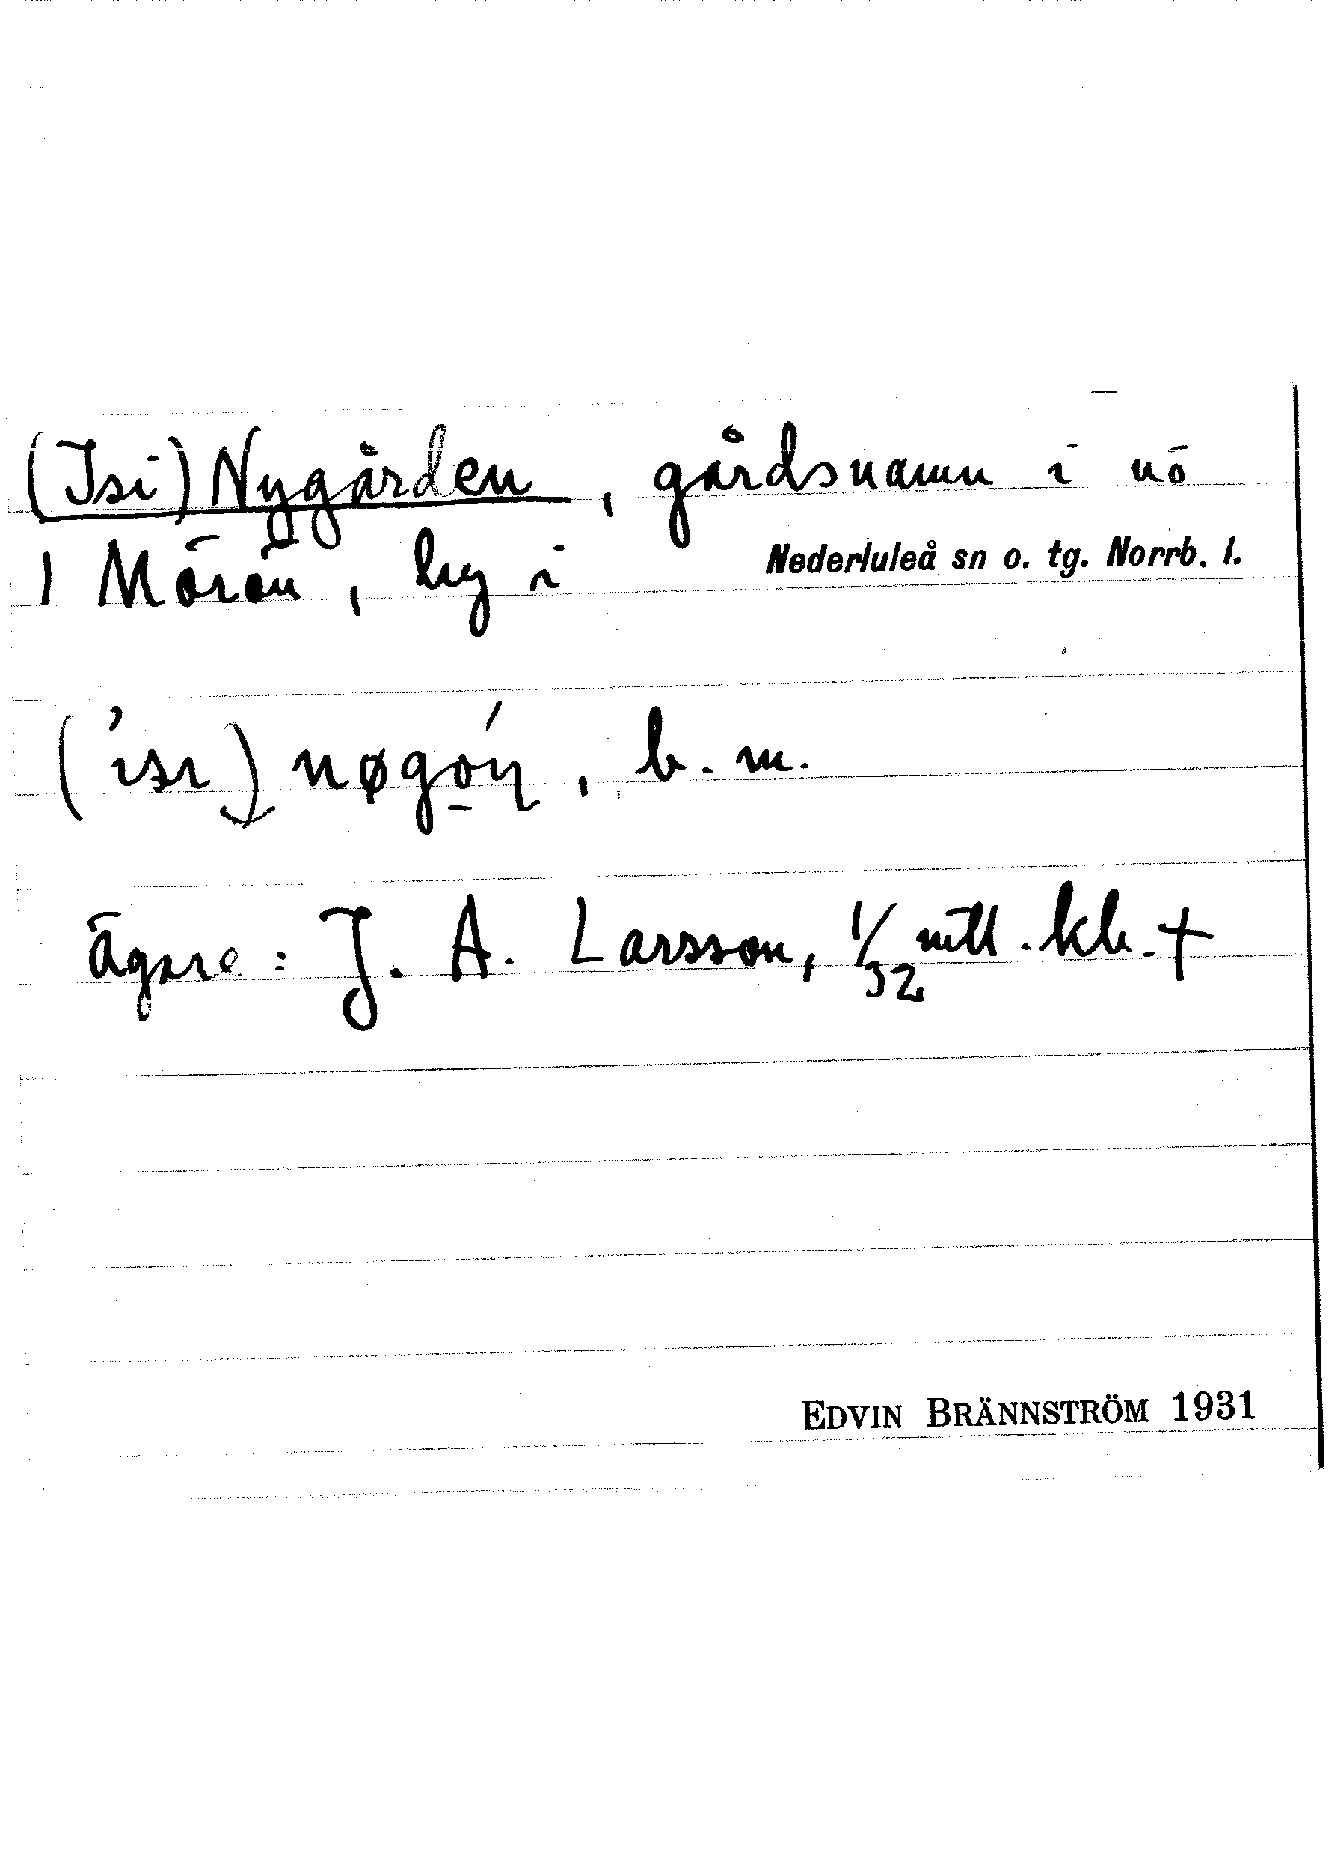 (Isi) Nygården, gårdsnamn i nö
1 Mörön, by i Nederluleå sn o. tg. Norrb. l.
('ısı) nøgó̱ṇ, b. m.
ägare: J. A. Larsson, 1/32 mtl. kb. +
EDVIN BRÄNNSTRÖM 1931